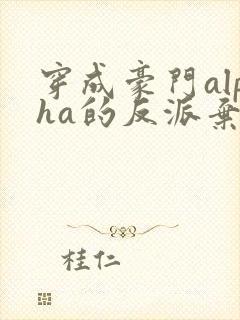 穿成豪門alp
ha的反派棄
桂仁